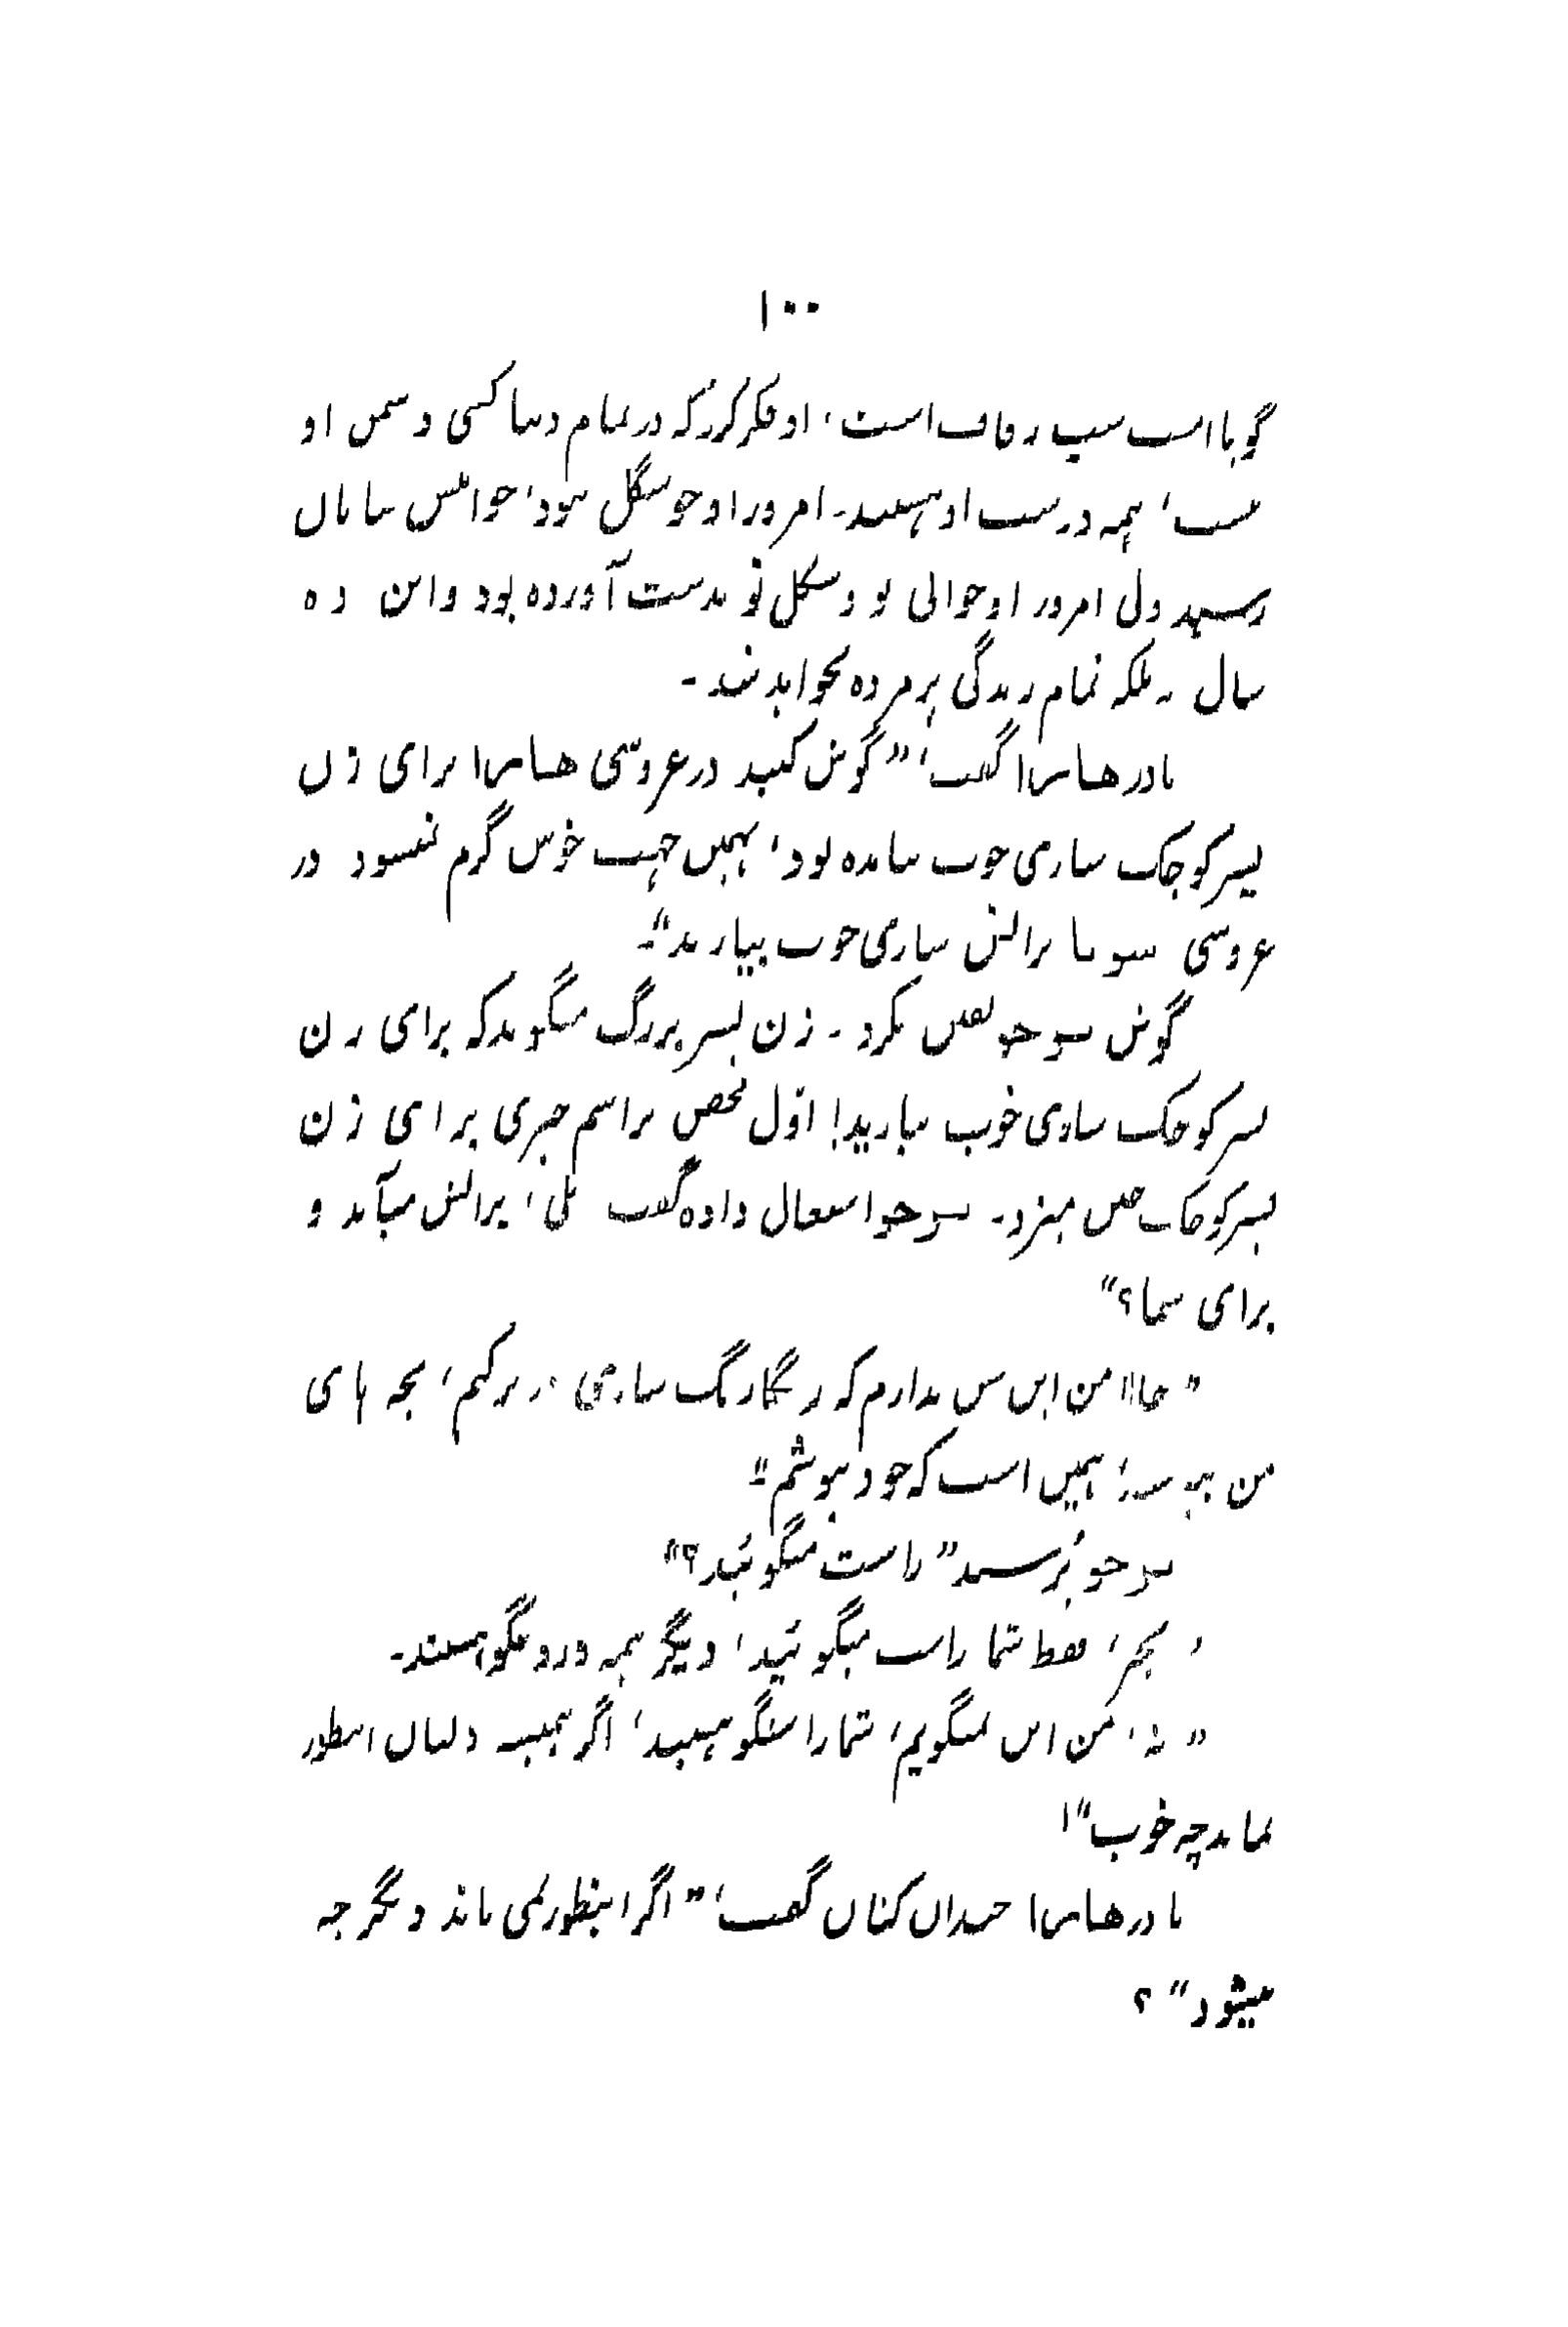 ۱۰۰
گویا است سیب رفاف است، او فکر کرد که در تمام دنیا کسی دشمن او
نیست، همه درست او هستند۔ امروز او خوشگل نبود، خواهش پایان
رسید ولی امروز او جوانی نو و شکل نو بدست آورده بود و این ده
سال نه بلکه تمام زندگی پژمرده نخواهد شد۔
مادر گفت، "گوش کنید در عروسی برای زن
پسر کوچک ساری خوب نیامده بود، بهمین جهت خوش گرم نمیشود در
عروسی برایش ساری خوب بیارید"۔
گوش یقین نکرد۔ زن پسر بزرگ میگوید که برای زن
پسر کوچک ساری خوب بیارید! اوّل شخص مراسم جبری برای زن
پسر کوچک میزد۔ داده گفت بلی، برایش میآید و
برای شما؟"
"حالا من این سن ندارم که رنگارنگ ساری در بر کنم، بچه های
من همین است که خود بپوشم"۔
پرسید "راست میگوئید؟"
فقط شما راست میگوئید، دیگر همه دروغگو هستند۔
"نه، من این نمیگویم، شما راستگو هستید، اگر همیشه اینطور
نماید چه خوب"!
مادر خندان کنان گفت، "اگر اینطور نمی ماند دیگر چه
میشود"؟